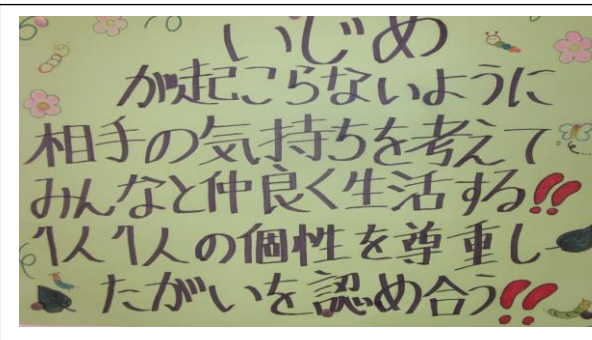 いじめ
が起こらないように
相手の気持ちを考えて
みんなと仲良く生活する!!
1人1人の個性を尊重し
たがいを認め合う!!